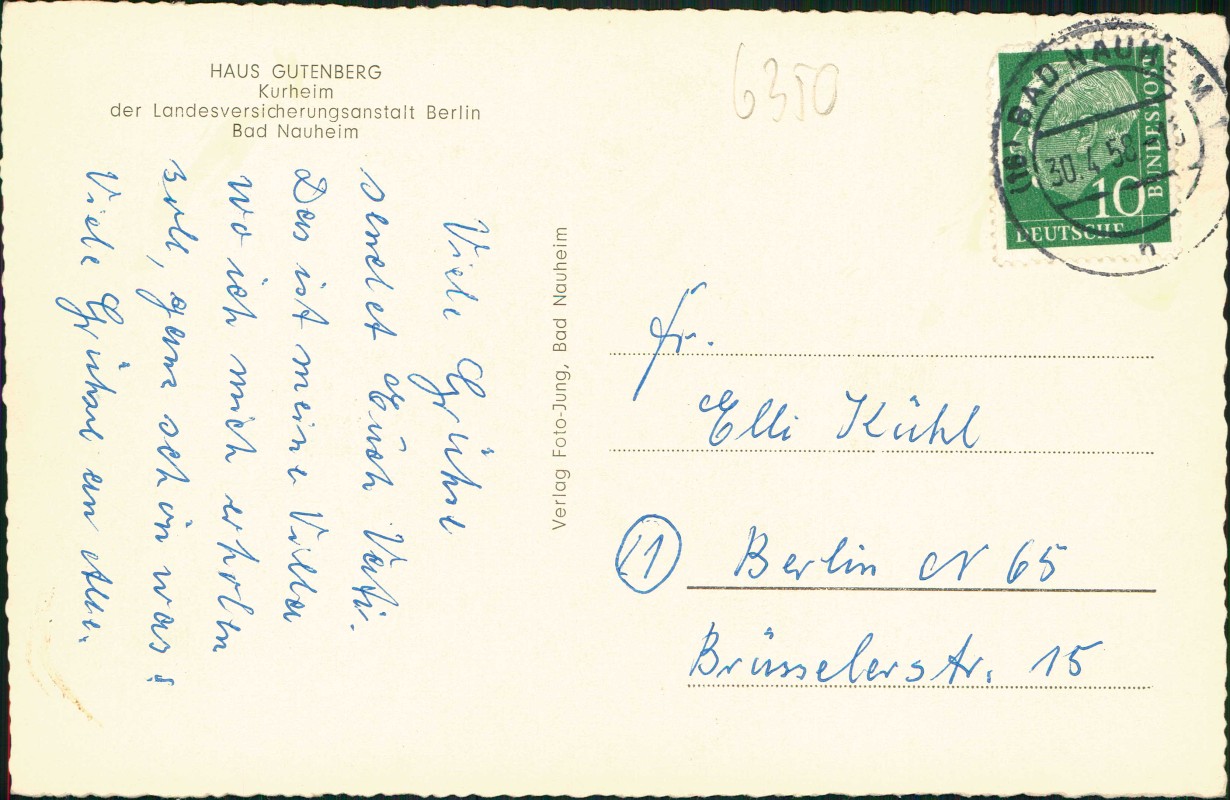 HAUS GUTENBERG
Kurheim
der Landesversicherungsanstalt Berlin
Bad Nauheim
Viele Grüße
sendet Euch Vati.
Das ist meine Villa
wo ich mich erholen
soll, ganz schön was!
Viele Grüße an Alle.
Verlag Foto-Jung, Bad Nauheim
6350
(16) BAD NAUHEIM
30.4.58
n
10
DEUTSCHE
BUNDESPOST
Fr.
Elli Kühl
(1) Berlin N 65
Brüsselerstr. 15